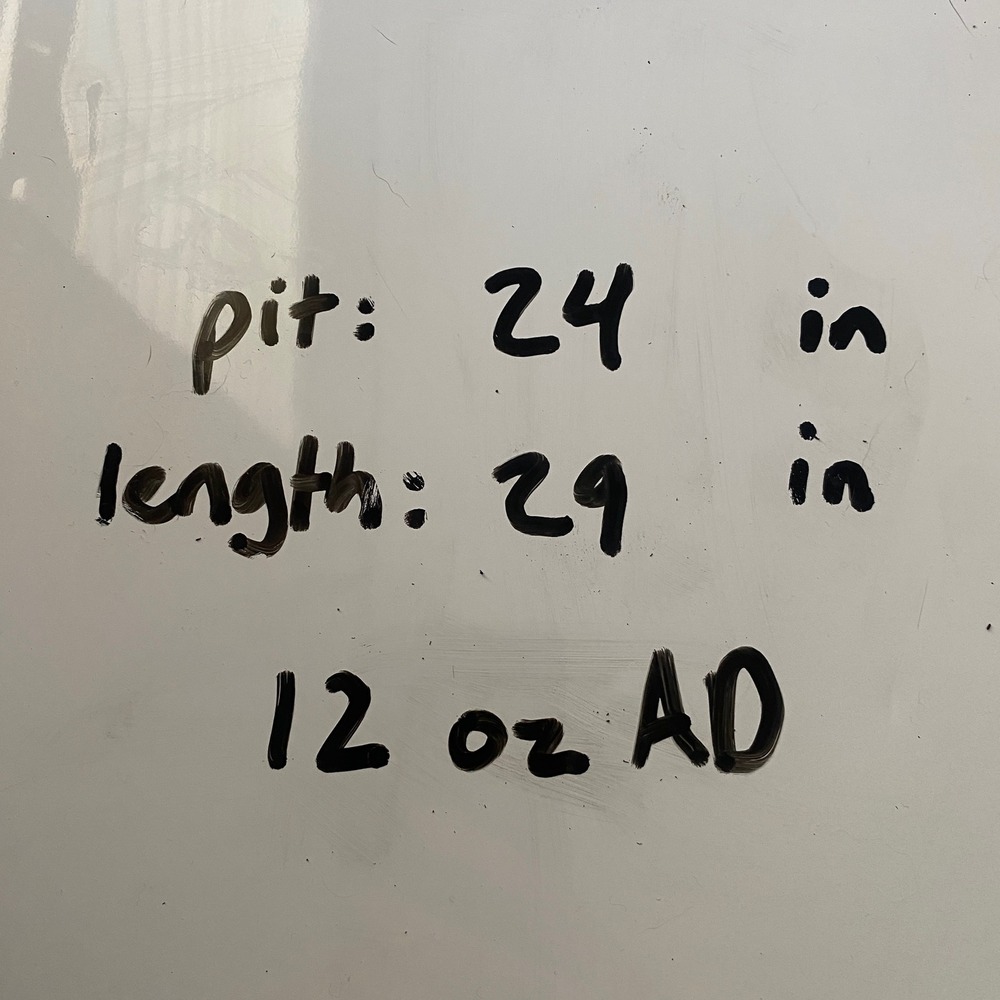 pit: 24 in
length: 29 in
12 oz AD